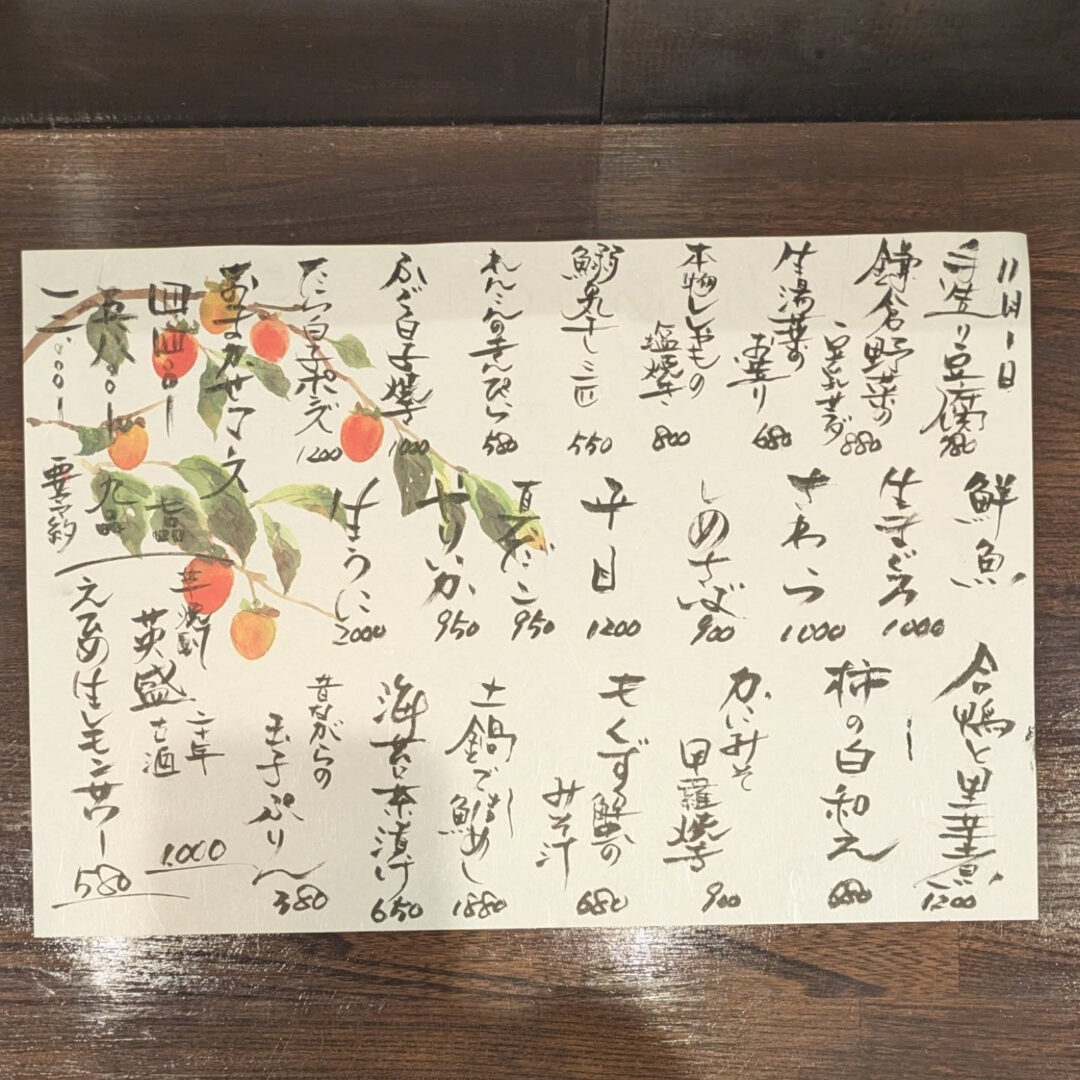 11月1日
手造り豆腐
780
鎌倉野菜の
豆乳サラダ
880
生湯葉の
お造り
680
本物ししゃもの
塩焼き
800
鰯の丸干し三匹
550
れんこんのきんぴら
580
ふぐ白子焼き
1000
たら白子ポン酢
1200
おまかせコース
四四〇〇ー
七品
五八〇〇ー
九品
一二、〇〇〇ー
要予約
鮮魚
生まぐろ
1000
さわら
1000
しめさば
900
平目
1200
真だこ
950
やりいか
950
生うに
2000
合鴨と里芋煮
1200
柿の白和え
680
かにみそ
甲羅焼き
900
もくず蟹の
みそ汁
680
土鍋で鯛めし
1880
海苔茶漬け
650
昔ながらの
玉子ぷりん
380
芋焼酎
英盛
二十年
古酒
1,000
えひめ生レモンサワー
580